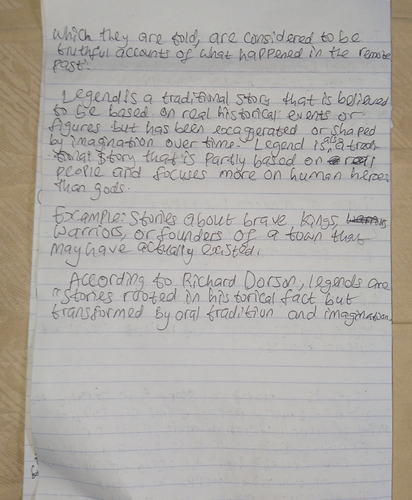 which they are told, are considered to be
truthful accounts of what happened in the remote
past."
Legend is a traditional story that is believed
to be based on real historical events or
figures but has been exaggerated or shaped
by imagination over time. Legend is also a trad-
itional story that is partly based on real
people and focuses more on human heroes
than gods.
Example: Stories about brave kings,
warriors, or founders of a town that
may have actually existed.
According to Richard Dorson, legends are
"stories rooted in historical fact but
transformed by oral tradition and imagination